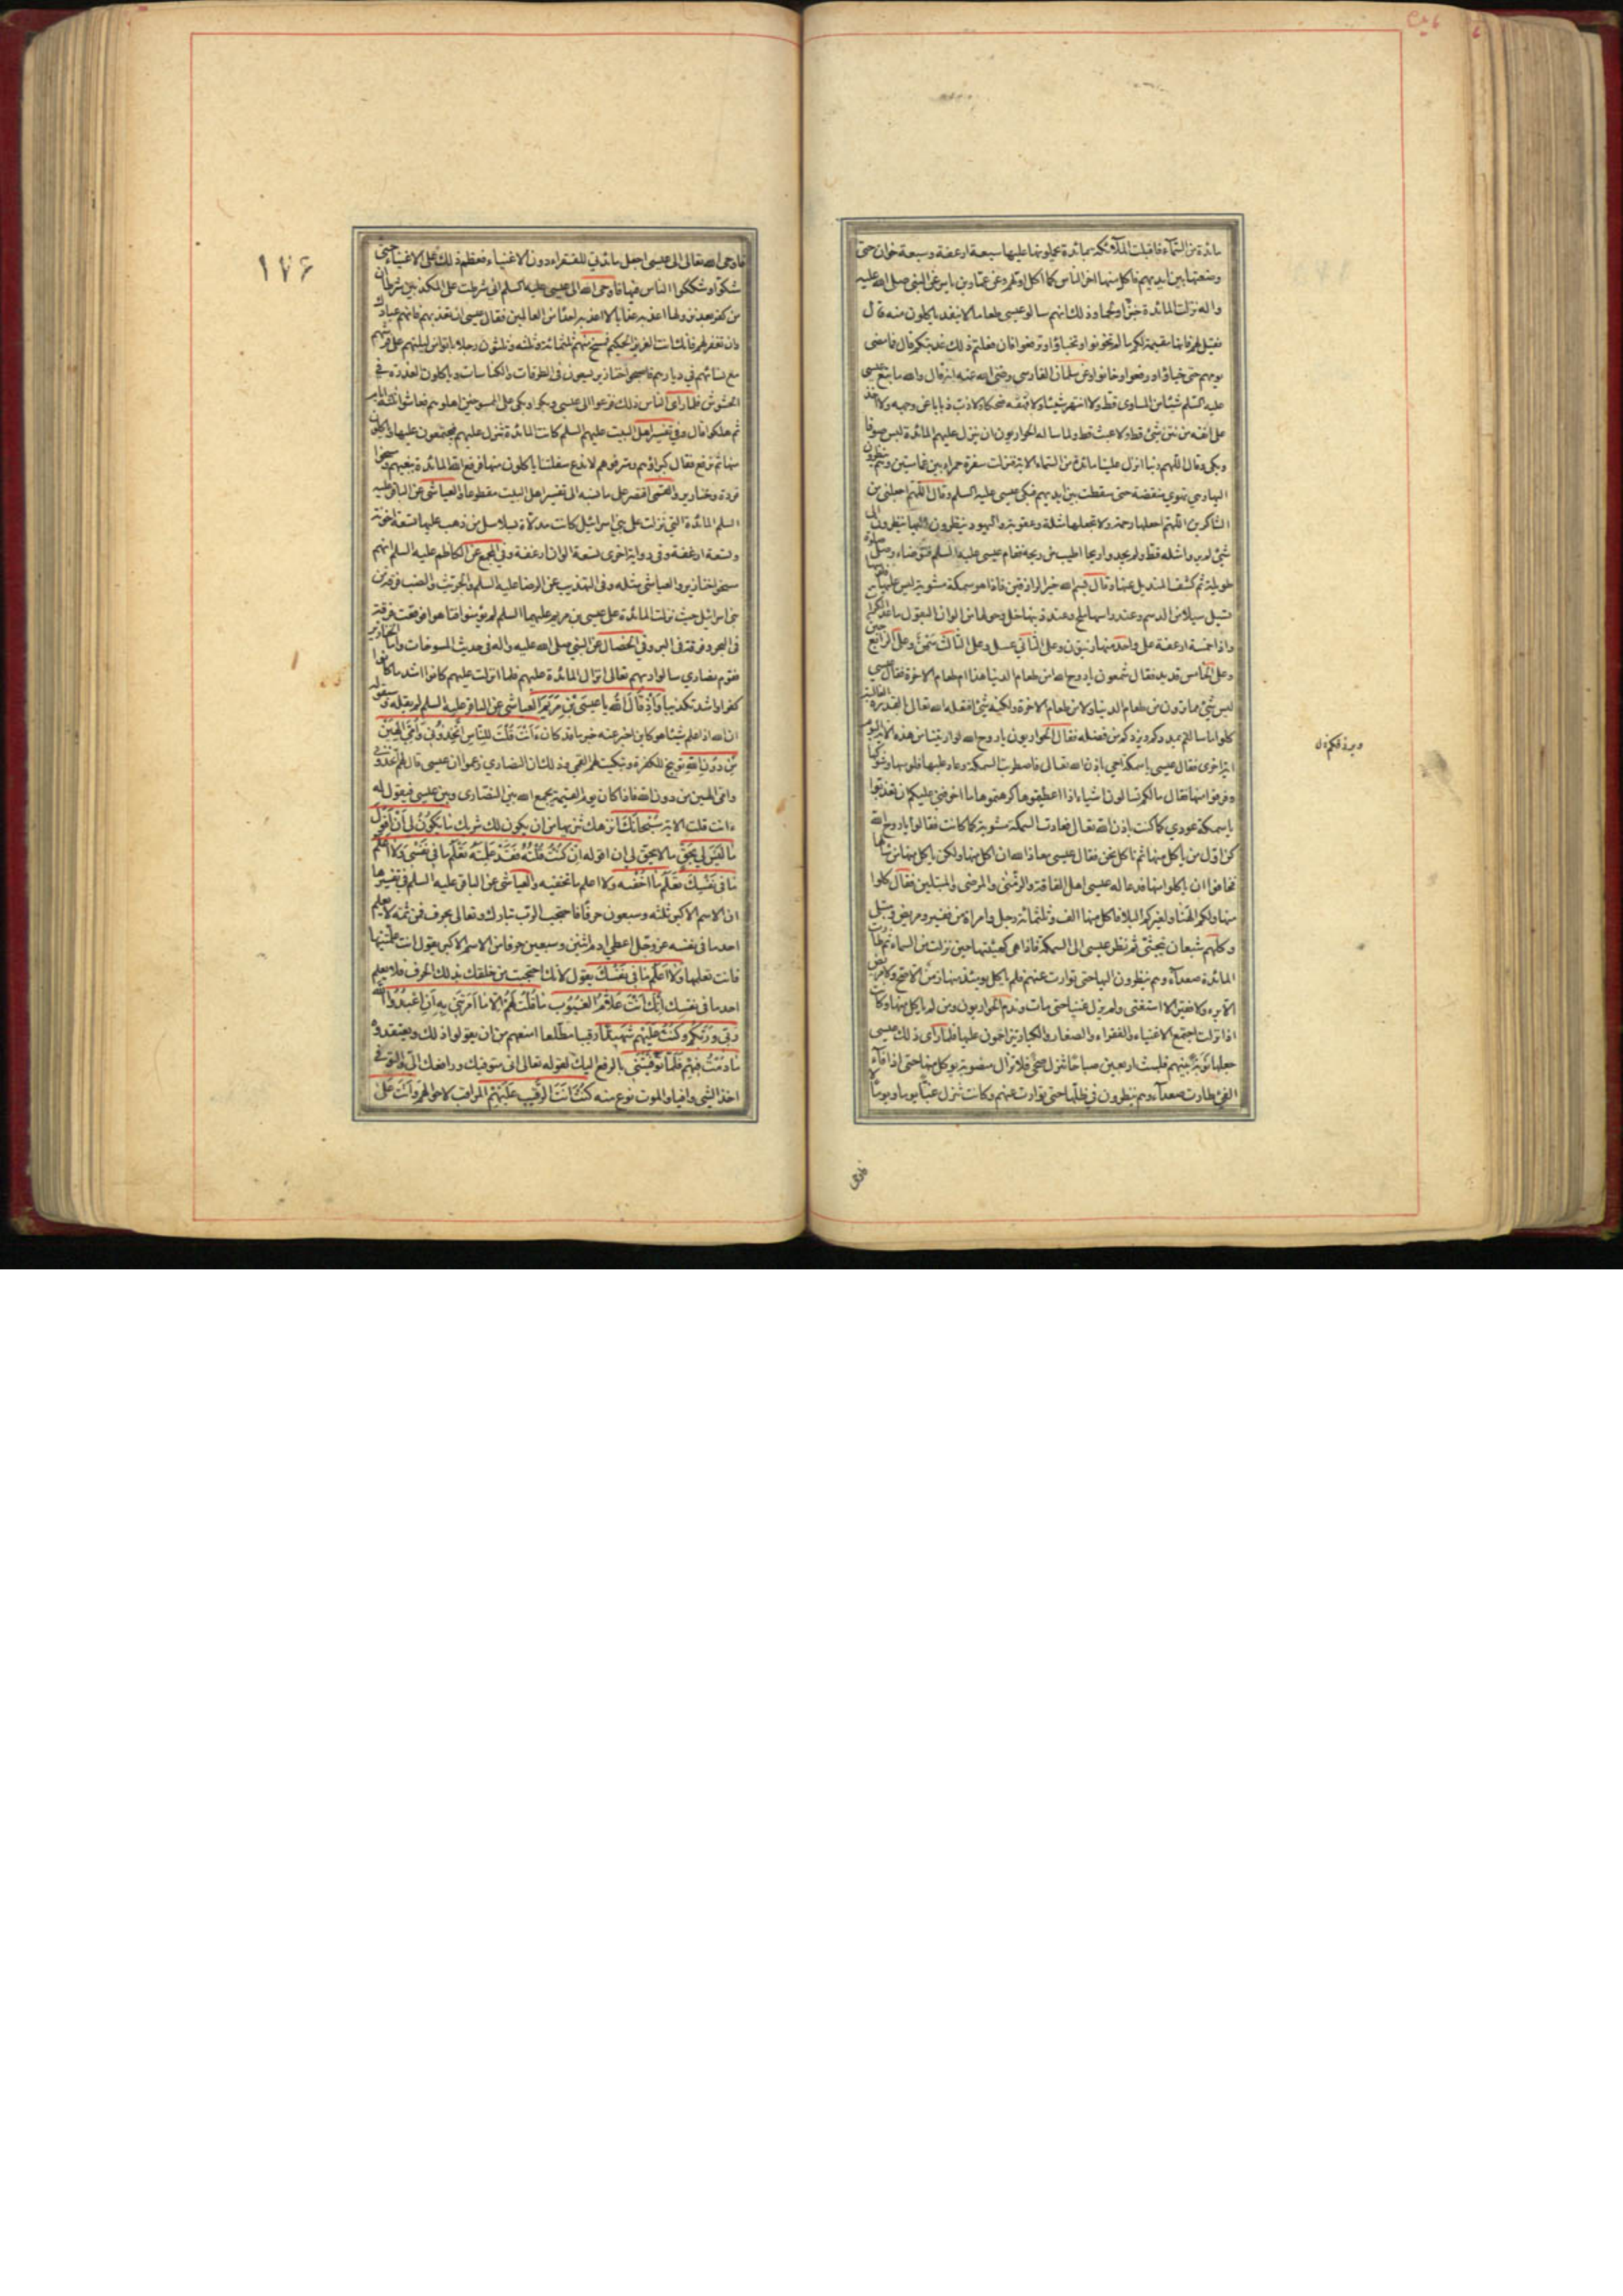 مائدة من السماء فاقبلت الملائكة بمائدة يحملونها عليها سبعة ارغفة وسبعة خوان حتى
وضعتها بين ايديهم فاكل منها اخر الناس كما اكل اولهم وعن عمار بن ياسر عن النبي صلى الله عليه
واله نزلت المائدة خبزا ولحما وذلك انهم سالوا عيسى طعاما لا ينفد ياكلون منه قال
فقيل لهم فانها مقيمة لكم ما لم تخونوا وتخباؤا وترفعوا فان فعلتم ذلك عذبتكم قال فما مضى
يومهم حتى خباؤا ورفعوا وخانوا وعن سلمان الفارسي رضي الله عنه انه قال والله ما تبع عيسى
عليه السلم شيئا من المساوى قط ولا انتهر شيئا ولا قهقه ضحكا ولا ذب ذبابا عن وجهه ولا اخذ
على انفه من نتن شئ قط ولا عبث قط ولما ساله الحواريون ان ينزل عليهم المائدة لبس صوفا
وبكى وقال اللهم ربنا انزل علينا مائدة من السماء الاية فنزلت سفرة حمراء بين غمامتين وهم ينظرون
اليها وهي تهوى منقضة حتى سقطت بين ايديهم فبكى عيسى عليه السلم وقال اللهم اجعلني من
الشاكرين اللهم اجعلها رحمة ولا تجعلها مثلة وعقوبة واليهود ينظرون اليها ينظرون الى
شئ لم يروا مثله قط ولم يجدوا ريحا اطيب من ريحه فقام عيسى عليه السلم فتوضاء وصلى صلوة
طويلة ثم كشف المنديل عنها وقال بسم الله خير الرازقين فاذا هو سمكة مشوية ليس عليها فلوسها
تسيل سيلا من الدسم وعند راسها ملح وعند ذنبها خل وحولها من الوان البقول ما عدا الكراث
واذا خمسة ارغفة على واحد منها زيتون وعلى الثاني عسل وعلى الثالث سمن وعلى الرابع جبن
وعلى الخامس قديد فقال شمعون يا روح الله امن طعام الدنيا هذا ام طعام الاخرة فقال عيسى
ليس شئ مما ترون من طعام الدنيا ولا من طعام الاخرة ولكنه شئ افتعله الله تعالى بالقدرة الغالبة
كلوا مما سالتم يمددكم ويزدكم من فضله فقال الحواريون يا روح الله لو اريتنا من هذه الاية اليوم
اية اخرى فقال عيسى يا سمكة احيي باذن الله تعالى فاضطربت السمكة وعاد عليها فلوسها وشوكها
ففزعوا منها فقال مالكم تسالون اشياء اذا اعطيتموها كرهتموها ما اخوفني عليكم ان تعذبوا
يا سمكة عودي كما كنت باذن الله تعالى فعادت السمكة مشوية كما كانت فقالوا يا روح الله
كن اول من ياكل منها ثم ناكل نحن فقال عيسى معاذ الله ان اكل منها ولكن ياكل منها من سالها
فخافوا ان ياكلوا منها فدعا له عيسى اهل الفاقة والزمنى والمرضى والمبتلين فقال كلوا
منها ولكم الهنا ولغيركم البلا فاكل منها الف وثلثمائة رجل وامراة من فقير ومريض ومبتلى
وكلهم شبعان يتجشئ ثم نظر عيسى الى السمكة فاذا هي كهيئتها حين نزلت من السماء ثم طارت
المائدة صعداء وهم ينظرون اليها حتى توارت عنهم فلم ياكل يومئذ منها زمن الا صح ولا مريض
الا برء ولا فقير الا استغنى ولم يزل غنيا حتى مات وندم الحواريون ومن لم ياكل منها وكانت
اذا نزلت اجتمع الاغنياء والفقراء والصغار والكبار يتزاحمون عليها فلما راى ذلك عيسى
جعلها نوبة بينهم فلبثت اربعين صباحا تنزل ضحى فلا تزال منصوبة يوكل منها حتى اذا فاء
الفئ طارت صعداء وهم ينظرون في ظلها حتى توارت عنهم وكانت تنزل غبا يوما ويوما لا
فاوحى
١٧۶
فاوحى الله تعالى الى عيسى اجعل مائدتي للفقراء دون الاغنياء فعظم ذلك على الاغنياء حتى
شكوا وشككوا الناس فيها فاوحى الله الى عيسى عليه السلم انى شرطت على المكذبين شرطا ان
من كفر بعد نزولها اعذبه عذابا لا اعذبه احدا من العالمين فقال عيسى ان تعذبهم فانهم عبادك
وان تغفر لهم فانك انت العزيز الحكيم فمسخ منهم ثلثمائة وثلثه وثلثون رجلا باتوا من ليلتهم على فرشهم
مع نسائهم في ديارهم فاصبحوا خنازير يسعون في الطرقات والكناسات وياكلون العذرة في
الحشوش فلما راى الناس ذلك فزعوا الى عيسى وبكوا وبكى على الممسوخين اهلوهم فعاشوا ثلثة ايام
ثم هلكوا قال وفي تفسير اهل البيت عليهم السلم كانت المائدة تنزل عليهم فيجتمعون عليها وياكلون
منها ثم ترتفع فقال كبراؤهم ومترفوهم لا ندع سفلتنا ياكلون منها فرفع الله المائدة ببغيهم ومسخوا
قردة وخنازير والقمى اقتصر على ما نسبه الى تفسير اهل البيت مقطوعا والعياشى عن الباقر عليه
السلم المائدة التي نزلت على بني اسرائيل كانت مدلاة بسلاسل من ذهب عليها تسعة اخونة
وتسعة ارغفة وفي رواية اخرى تسعة الوان ارغفة وفي المجمع عن الكاظم عليه السلم انهم
مسخوا خنازير والعياشى مثله وفى التهذيب عن الرضا عليه السلم والجريث والضب فرقة من
بنى اسرائيل حيث نزلت المائدة على عيسى بن مريم عليهما السلم لم يؤمنوا فتاهوا فوقعت فرقة
في البحر وفرقة في البر وفي الخصال عن النبي صلى الله عليه واله فى حديث المسوخات واما الخنازير
فقوم نصارى سالوا ربهم تعالى انزال المائدة عليهم فلما انزلت عليهم كانوا اشد ما كانوا
كفرا واشد تكذيبا وَاِذْ قَالَ اللهُ يا عيسَى بْنَ مَرْيَمَ العياشى عن الباقر عليه السلم لم يقله وسيقوله
ان الله اذا علم شيئا هو كاين اخبر عنه خبر ما قد كان ءَاَنْتَ قُلْتَ لِلنَّاسِ اتَّخِذُونى وَاُمِّيَ اِلهَيْنِ
مِنْ دُونِ اللهِ توبيخ للكفرة وتبكيت لهم القمي وذلك ان النصارى زعموا ان عيسى قال لهم اتخذونى
وامى الهين من دون الله فاذا كان يوم القيمة يجمع الله بين النصارى وبين عيسى فيقول له
ءانت قلت الاية سُبْحانَكَ انزهك تنزيها من ان يكون لك شريك ما يَكُونُ لى اَنْ اَقُولَ
ما لَيْسَ لى بِحَقٍّ ما لا يحق لي ان اقوله اِنْ كُنْتُ قُلْتُهُ فَقَدْ عَلِمْتَهُ تَعْلَمُ ما فى نَفْسى وَلا اَعْلَمُ
ما فى نَفْسِكَ تعلم ما اخفيه ولا اعلم ما تخفيه والعياشى عن الباقر عليه السلم في تفسيرها
ان الاسم الاكبر ثلثه وسبعون حرفا فاحتجب الرب تبارك وتعالى بحرف فمن ثمة لا يعلم
احد ما فى نفسه عز وجل اعطي ادم اثنين وسبعين حرفا من الاسم الاكبر يقول انت علمتنيها
فانت تعلمها وَلا اَعْلَمُ ما فى نَفْسِكَ يقول لانك احتجبت من خلقك بذلك الحرف فلا يعلم
احد ما فى نفسك اِنَّكَ اَنْتَ عَلّامُ الْغُيُوبِ ما قُلْتُ لَهُمْ اِلّا ما اَمَرْتَنى بِهِ اَنِ اعْبُدُوا اللهَ
رَبّى وَرَبَّكُمْ وَكُنْتُ عَلَيْهِمْ شَهيداً رقيبا مطلعا امنعهم من ان يقولوا ذلك ويعتقدوه
ما دُمْتُ فيهِمْ فَلَمّا تَوَفَّيْتَنى بالرفع اليك لقوله تعالى انى متوفيك ورافعك الىّ والتوفى
اخذ الشئ وافيا والموت نوع منه كُنْتَ اَنْتَ الرَّقيبَ عَلَيْهِمْ المراقب لاحوالهم وَاَنْتَ عَلى